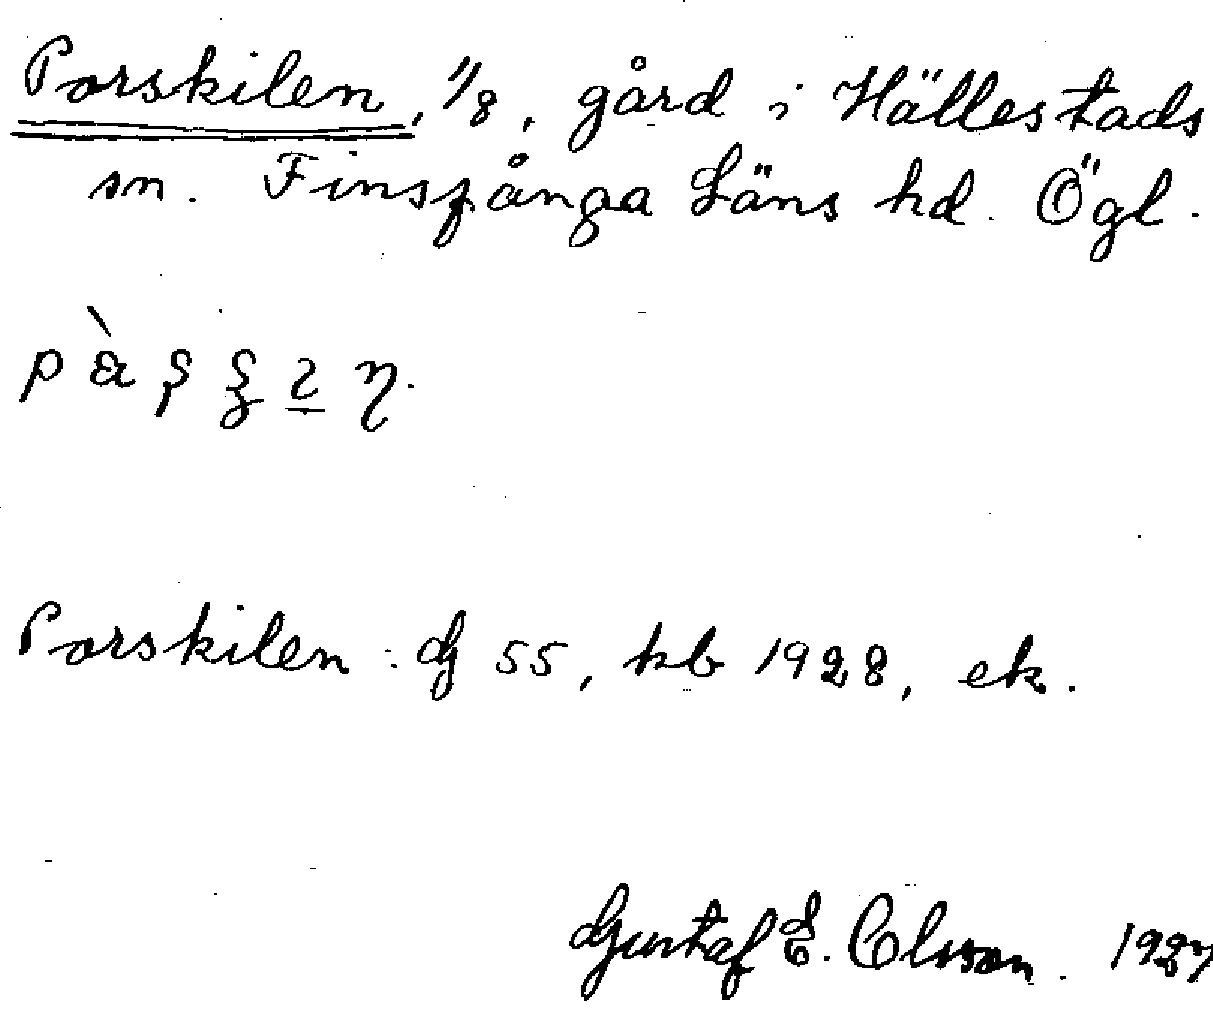 Porskilen, 1/8, gård i Hällestads
sn. Finspånga Läns hd. Ögl.
Porskilen : G 55, kb 1928, ek.
Gustaf E. Olsson. 1927